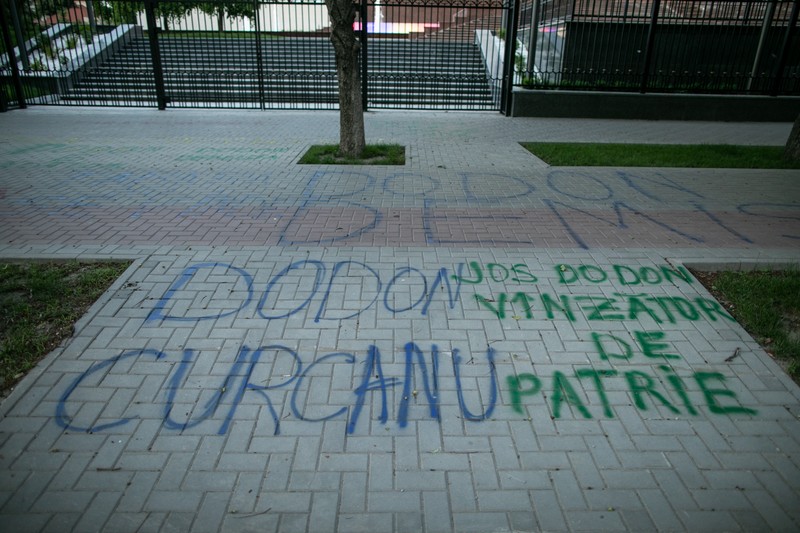 DODON
DEMIS
DODON
CURCANU
JOS DODON
VINZĂTOR
DE
PATRIE